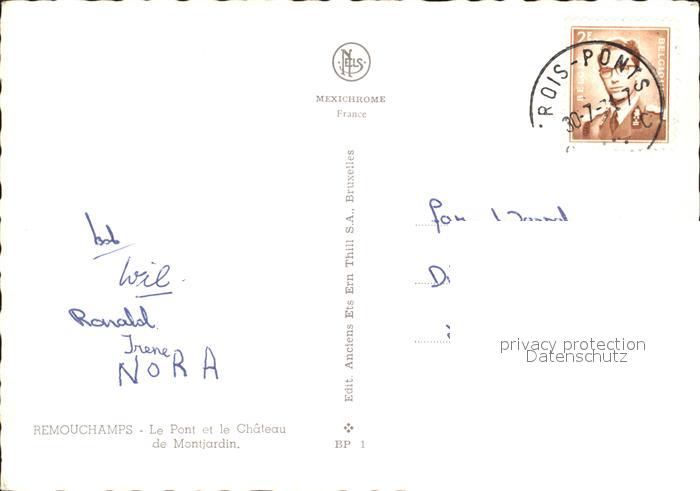 NELS
MEXICHROME
France
2F
BELGIQUE
ROIS-PONTS
30-7-
bob
Wil
Ronald
Irene
NORA
REMOUCHAMPS - Le Pont et le Château
de Montjardin.
Edit. Anciens Ets Ern Thill S.A., Bruxelles
BP 1
Fam
privacy protection
Datenschutz